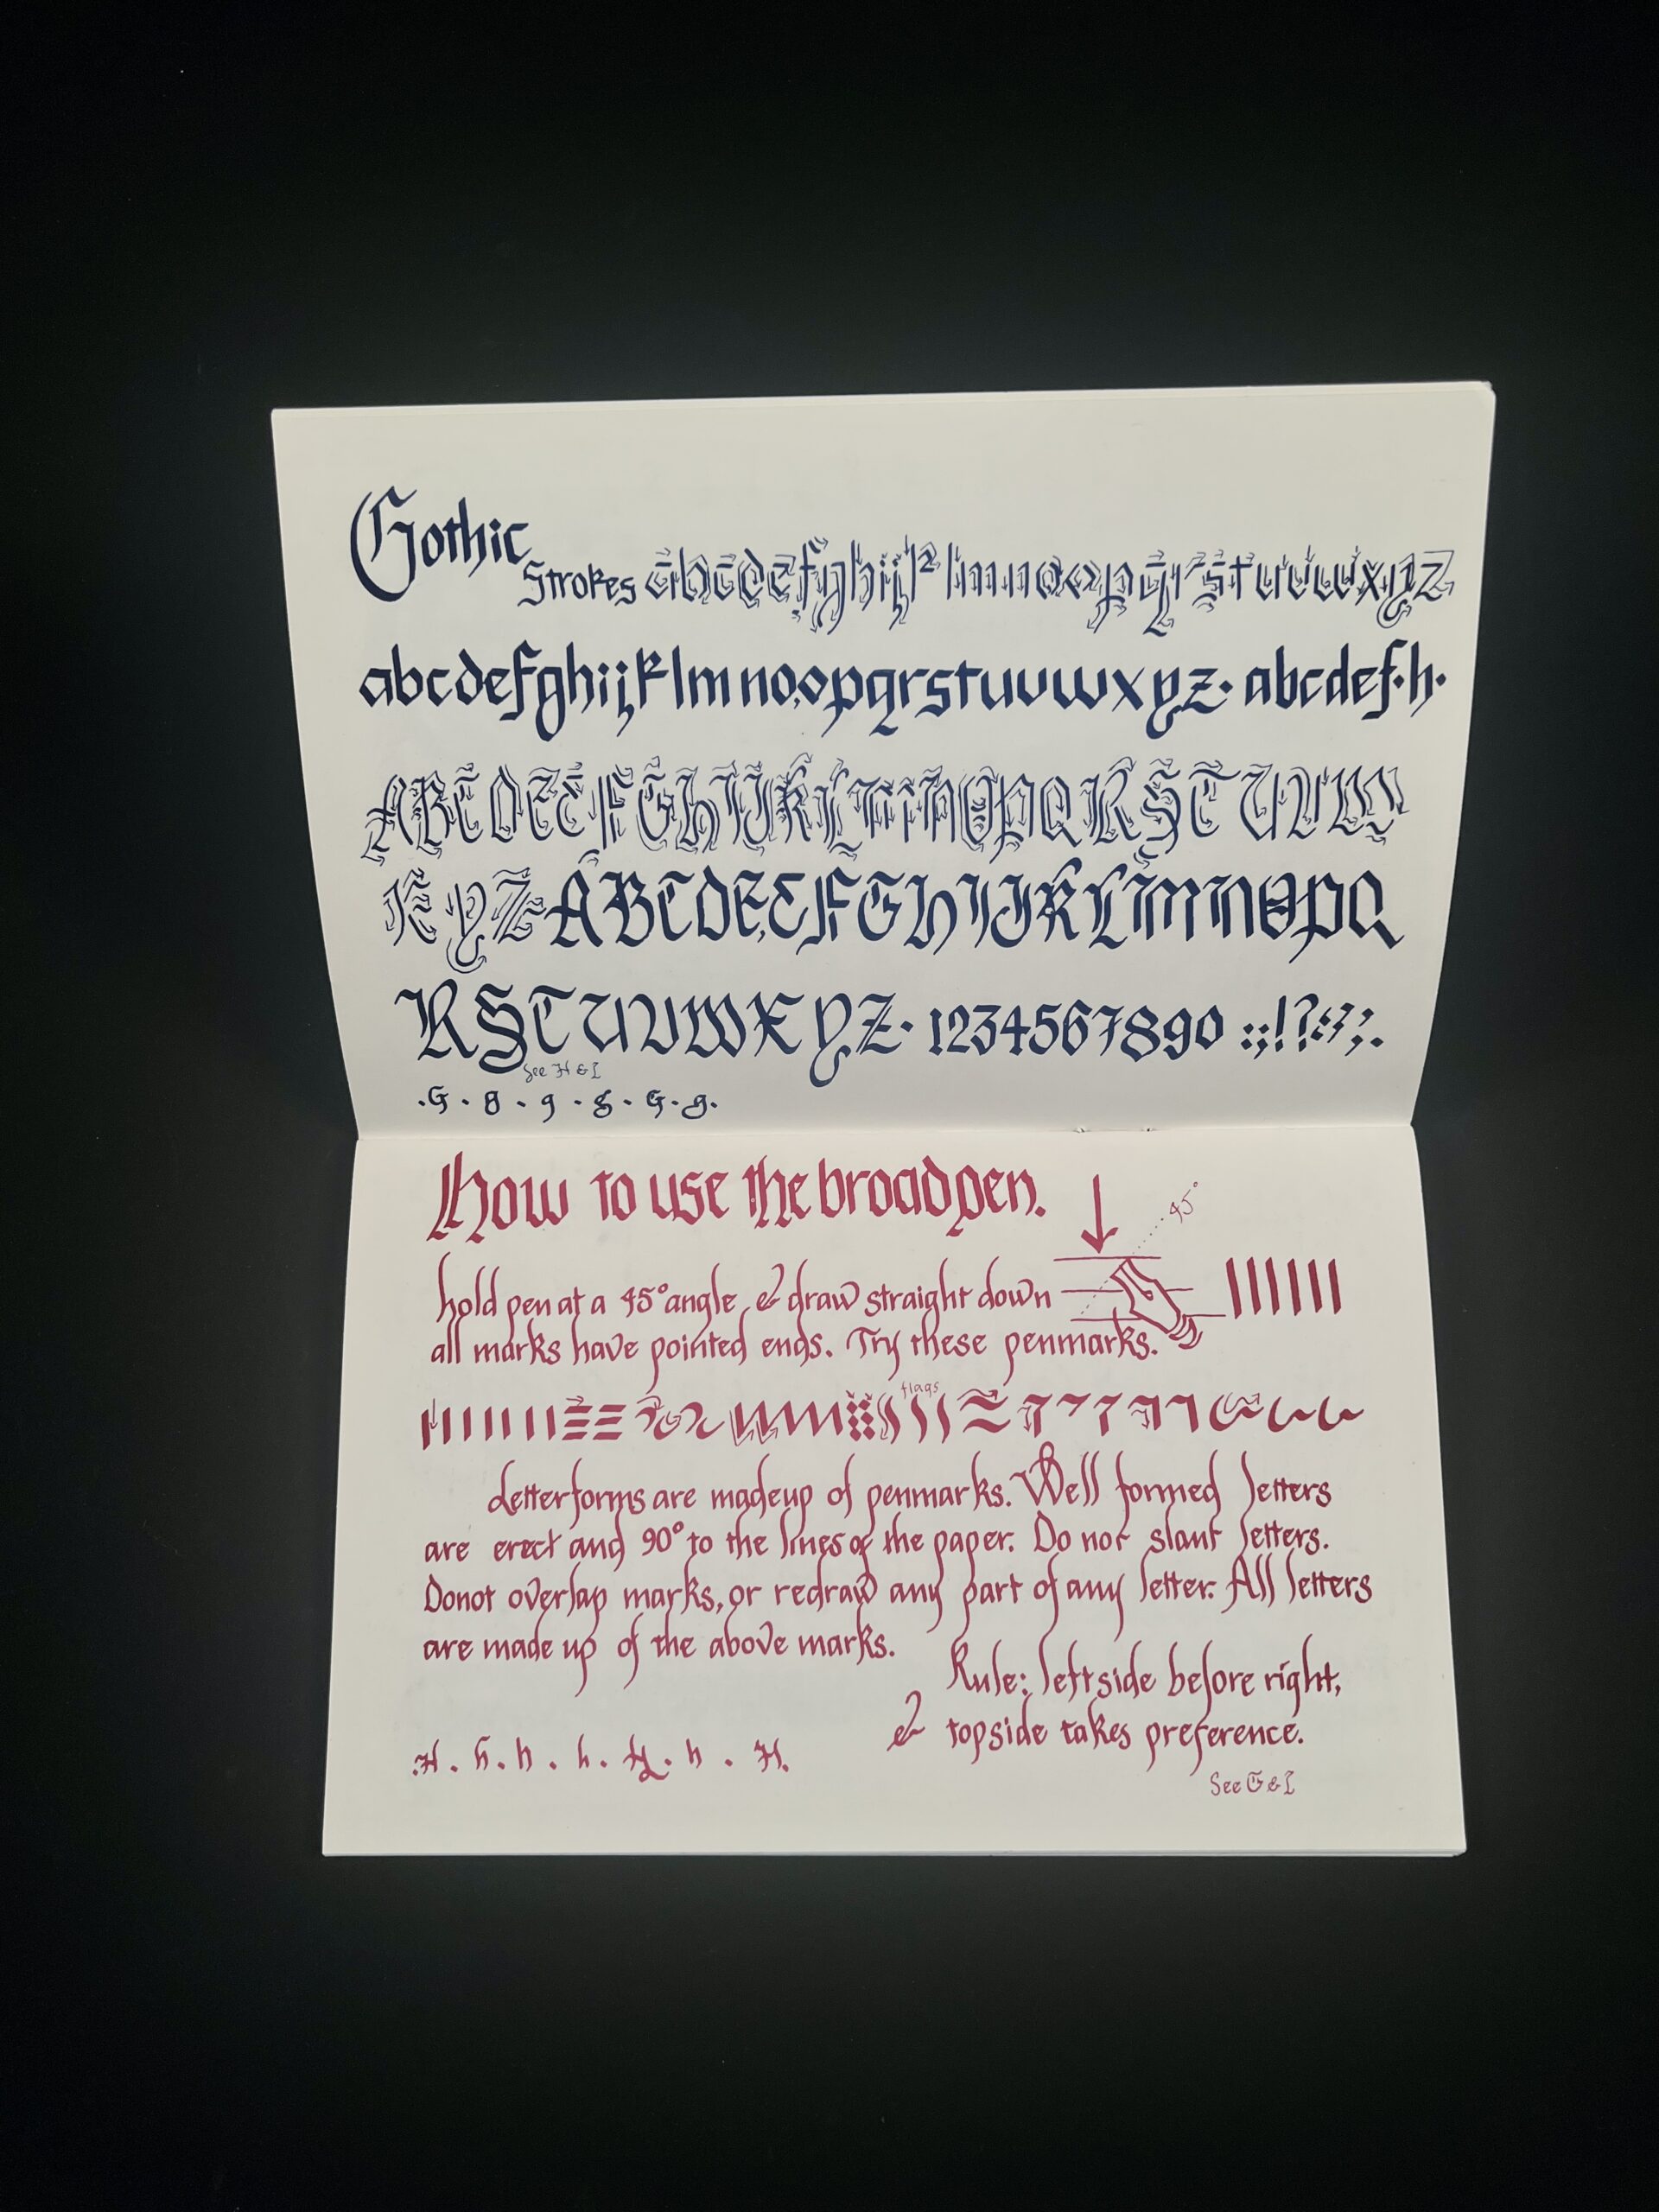 Gothic
Strokes abcdefghijklmnoopqrstuvwxyz
abcdefghijklmnoopqrstuvwxyz· abcdef·h·
ABCDEEFGHIJKLMNOPQRSTUVW
XYZ ABCDEEFGHIJKLMNOPQ
RSTUVWXYZ· 1234567890 :;!?
See H & I
·G · g · g · g · G · g·
How to use the broad pen.
45°
hold pen at a 45° angle & draw straight down
all marks have pointed ends. Try these penmarks.
flags
Letterforms are made up of penmarks. Well formed letters
are erect and 90° to the lines of the paper. Do not slant letters.
Donot overlap marks, or redraw any part of any letter. All letters
are made up of the above marks.
Rule: leftside before right,
& topside takes preference.
·H · h · h · h · H · h · H.
See G & I